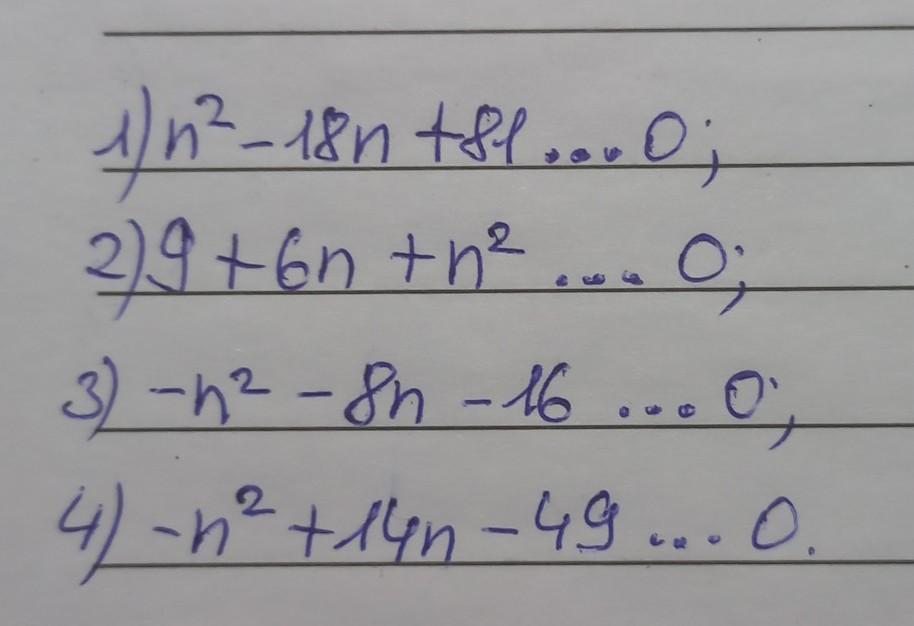 1) n² - 18n + 81 .... 0;
2) 9 + 6n + n² .... 0;
3) -n² - 8n - 16 .... 0;
4) -n² + 14n - 49 .... 0.